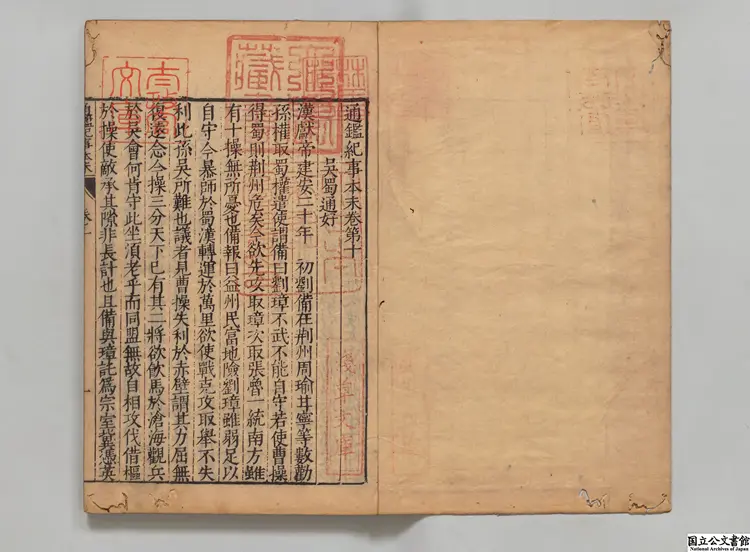 通鑑紀事本末卷第十
吳蜀通好
漢獻帝建安二十年　初劉備在荆州周瑜甘寧等數勸
孫權取蜀權遣使謂備曰劉璋不武不能自守若使曹操
得蜀則荆州危矣今欲先攻取璋次取張魯一統南方雖
有十操無所憂也備報曰益州民富地險劉璋雖弱足以
自守今暴師於蜀漢轉運於萬里欲使戰克攻取舉不失
利此孫吳所難也議者見曹操失利於赤壁謂其力屈無
復遠念今操三分天下已有其二將欲飲馬於滄海觀兵
於吳會何肯守此坐須老乎而同盟無故自相攻伐借樞
於操使敵承其隙非長計也且備與璋託爲宗室冀憑英
淺草文庫
国立公文書館
National Archives of Japan